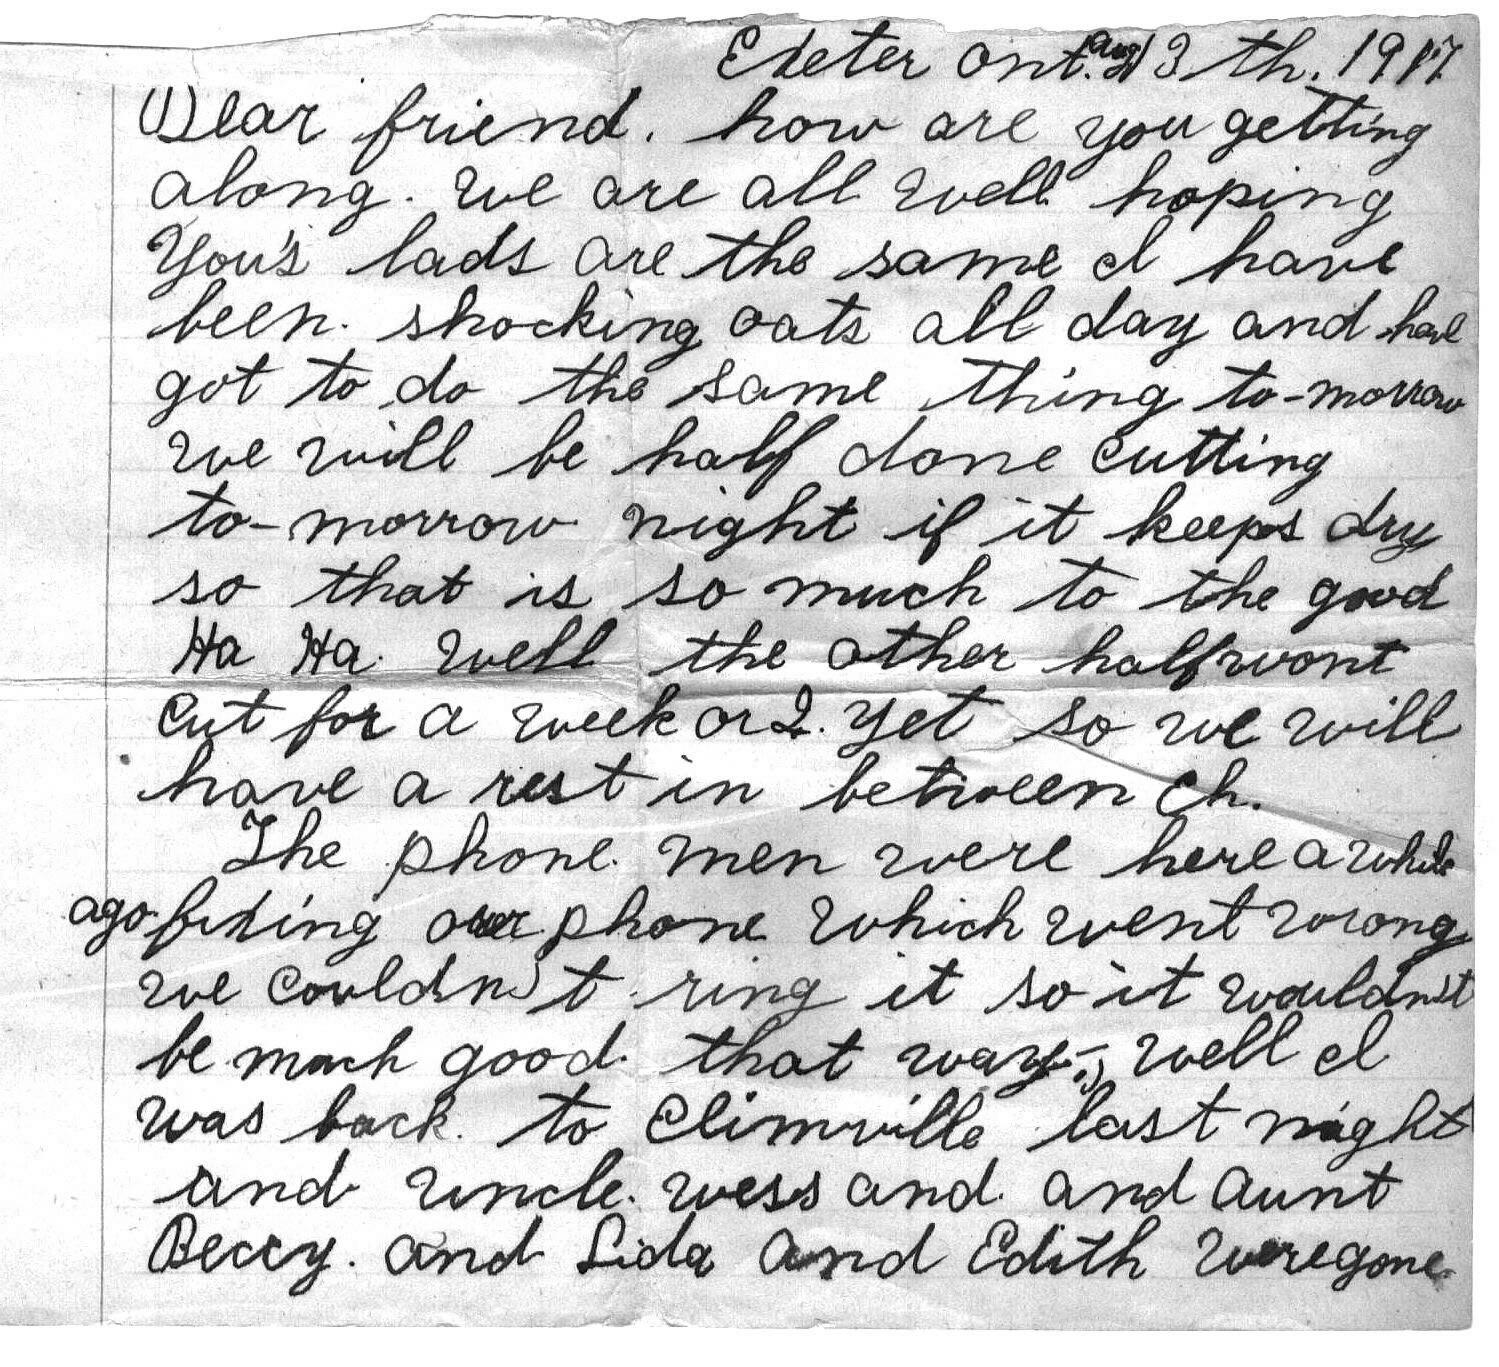 Exeter Ont. Aug 13th. 1917
Dear friend. how are you getting
along. we are all well hoping
You's lads are the same I have
been. shocking oats all day and have
got to do the same thing to-morrow
we will be half done cutting
to-morrow night if it keeps dry
so that is so much to the good
Ha Ha. well the other half wont
cut for a week or 2. yet so we will
have a rest in between Eh.
The phone. men were here a while
ago fixing our phone which went wrong
we couldn't ring it so it wouldn't
be much good. that way. well I
was back. to Elimville last night
and uncle. wess and. and aunt
Beccy. and Lida and Edith were gone.